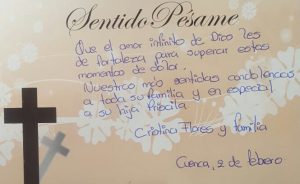 Sentido Pésame
Que el amor infinito de Dios les
de fortaleza para superar estos
momentos de dolor.
Nuestras más sentidas condolencias
a toda su familia y en especial
a su hija Priscila
Cristina Flores y familia
Cuenca, 2 de febrero